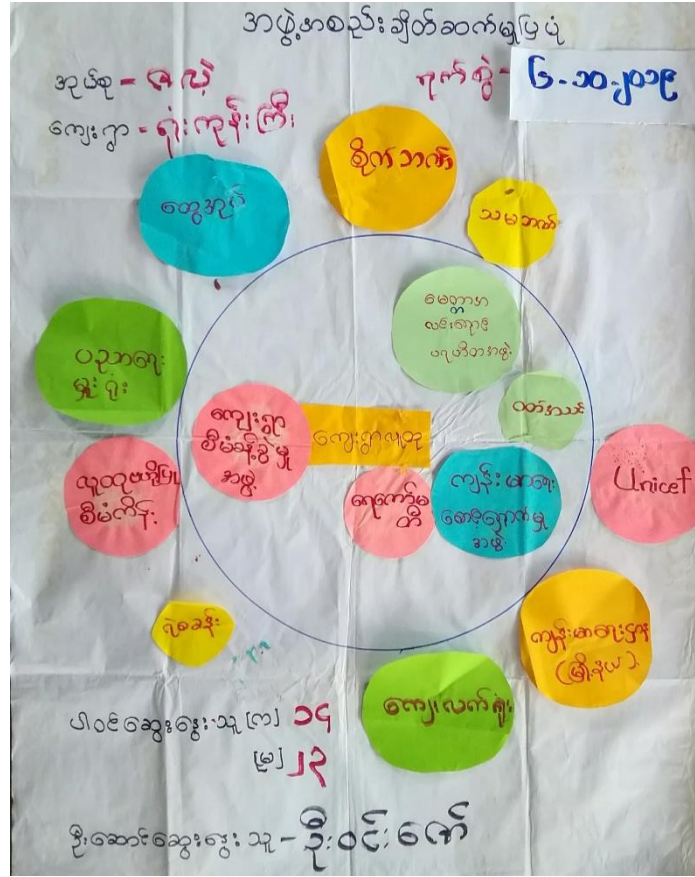 အဖွဲ့အစည်းချိတ်ဆက်မှုပြပုံ
အုပ်စု - ဇလဲ့
ရက်စွဲ - ၆-၁၀-၂၀၁၉
ကျေးရွာ - ရုံးကုန်းကြီး
စိုက်ဘဏ်
ထွေအုပ်
သမဘဏ်
မေတ္တာအ
လင်းရောင်
ပရဟိတအဖွဲ့
ပညာရေး
ရှုံးရုံး
ဝတ်အသင်း
ကျေးရွာ
စီမံခန့်ခွဲမှု
အဖွဲ့
ကျေးရွာလူထု
လူထုဗဟိုပြု
စီမံကိန်း
ရေကော်မ
တီ
ကျန်းမာရေး
စောင့်ရှောက်မှု
အဖွဲ့
Unicef
ရဲစခန်း
ကျန်းမာရေးဌာန
(မြို့နယ်)
ကျေးလက်ရုံး
ပါဝင်ဆွေးနွေးသူ [က] ၁၄
[မ] ၂၃
ဦးဆောင်ဆွေးနွေးသူ - ဦးဝင်းဇော်